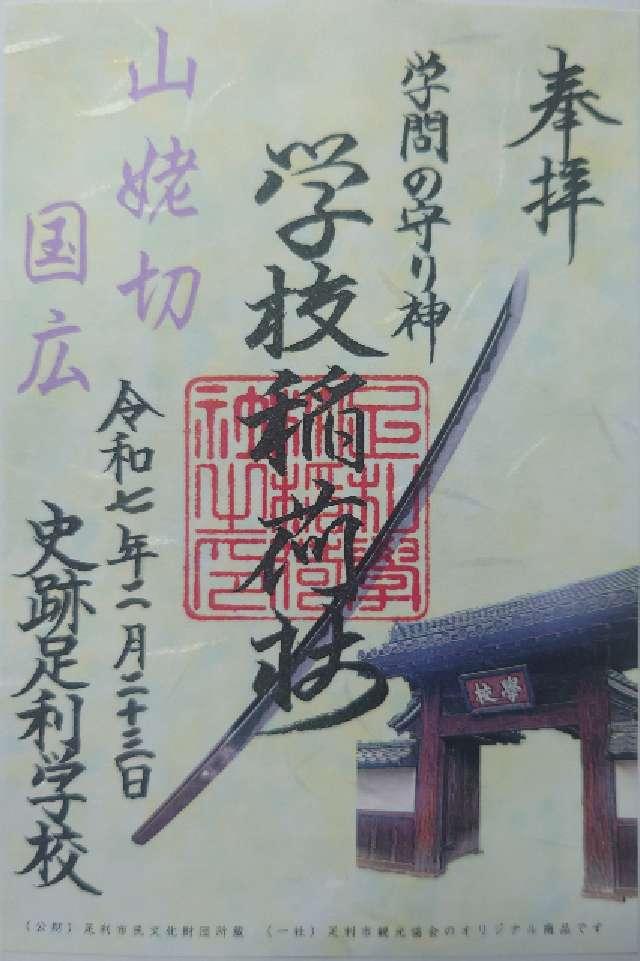 奉拝
学問の守り神
学校稲荷社
山姥切
国広
令和七年二月二十三日
史跡足利学校
學校
(公財)足利市民文化財団所蔵 (一社)足利市観光協会のオリジナル商品です